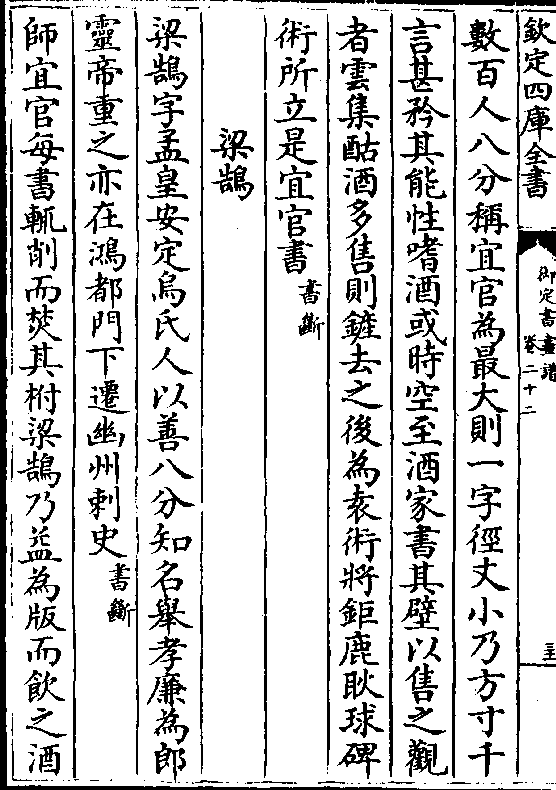 欽定四庫全書
御定書畫譜
卷二十二
數百人八分稱宜官為最大則一字徑丈小乃方寸千
言甚矜其能性嗜酒或時空至酒家書其壁以售之觀
者雲集酤酒多售則鏟去之後為袁術將鉅鹿耿球碑
術所立是宜官書書斷
梁鵠
梁鵠字孟皇安定烏氏人以善八分知名舉孝廉為郎
靈帝重之亦在鴻都門下遷幽州刺史書斷
師宜官每書輒削而焚其柎梁鵠乃益為版而飲之酒